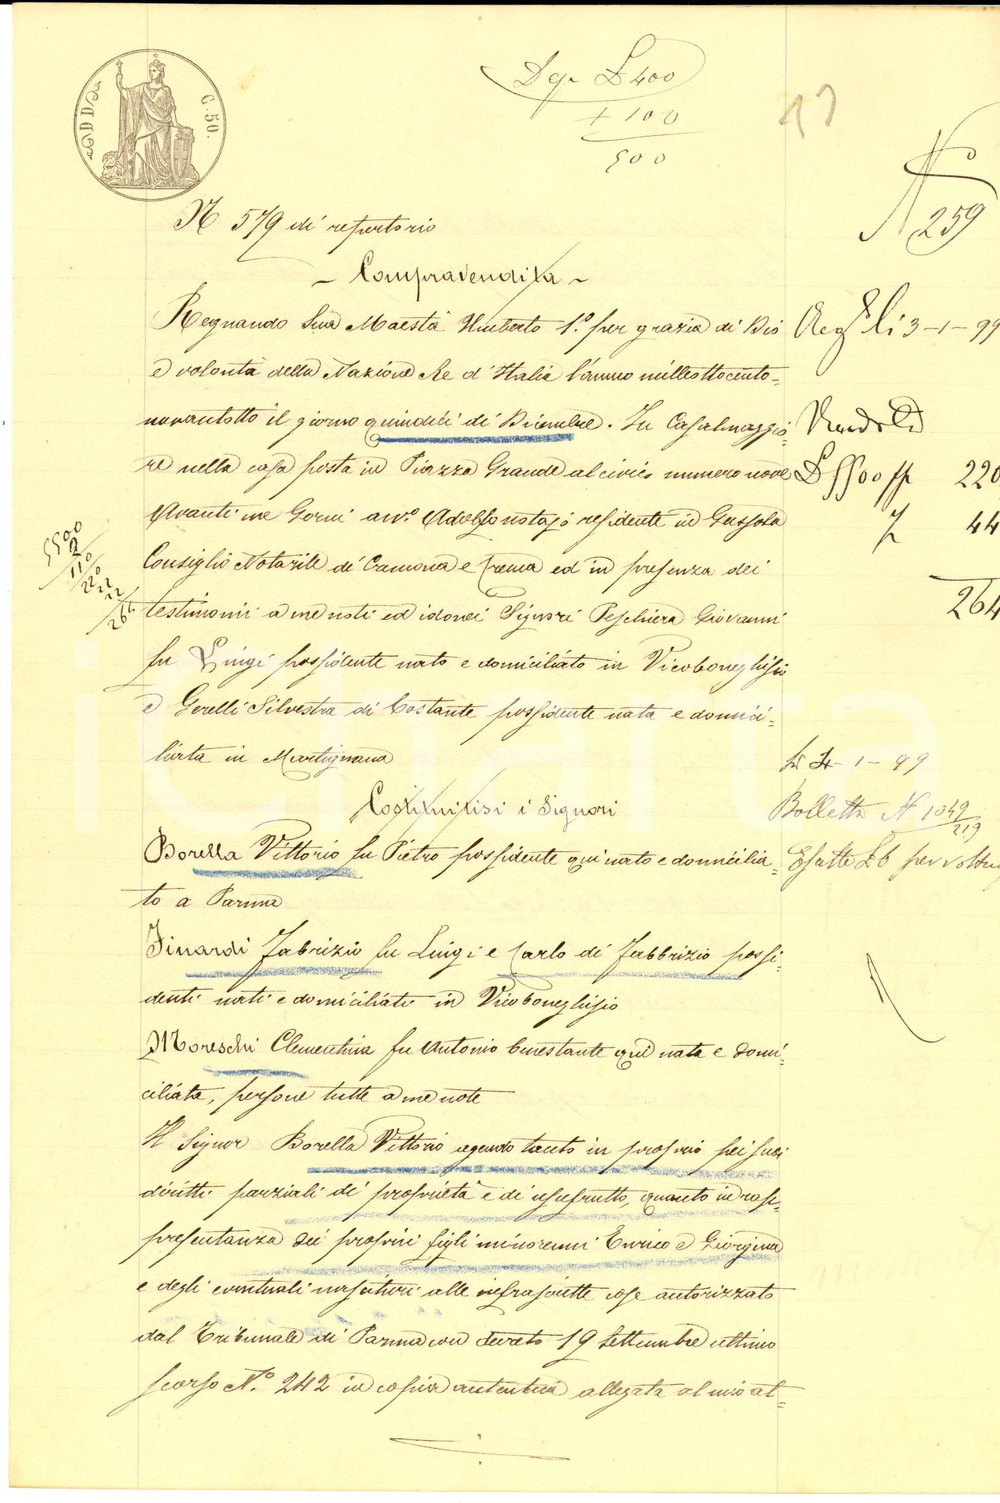 C. 50.
£ 400
+ 100
500
N 259
N. 579 di repertorio
Compravendita
Regnando Sua Maestà Umberto 1.° per grazia di Dio
e volontà della Nazione Re d'Italia l'anno milleottocento=
novantotto il giorno quindici di Dicembre. In Casalmaggio=
re nella casa posta in Piazza Grande al civico numero nove
Avanti me Gorni avv.° Adolfo notajo residente in Gussola
Consiglio Notarile di Cremona e Crema ed in presenza dei
testimoni a me noti ed idonei Signori Peschiera Giovanni
fu Luigi possidente nato e domiciliato in Vicoboneghisio
e Gerelli Silvestra di Costante possidente nata e domici=
liata in Martignana
Costituitisi i Signori
Borella Vittorio fu Pietro possidente qui nato e domicilia=
to a Parma
Finardi Fabrizio fu Luigi e Carlo di Fabbrizio possi=
denti nati e domiciliati in Vicoboneghisio
Moreschi Clementina fu Antonio benestante qui nata e domi=
ciliata, persone tutte a me note
Il Signor Borella Vittorio agendo tanto in proprio pei suoi
diritti parziali di proprietà e di usufrutto, quanto in rap=
presentanza dei proprii figli minorenni Enrico e Giorgina
e degli eventuali nascituri alle infrascritte cose autorizzato
dal Tribunale di Parma con decreto 19 Settembre ultimo
scorso N.° 242 in copia autentica allegata al mio at=
3-1-99
5500
220
44
264
5500
2
110
220
22
264
4-1-99
Bolletta N 1049
219
Esatte £ 6 per